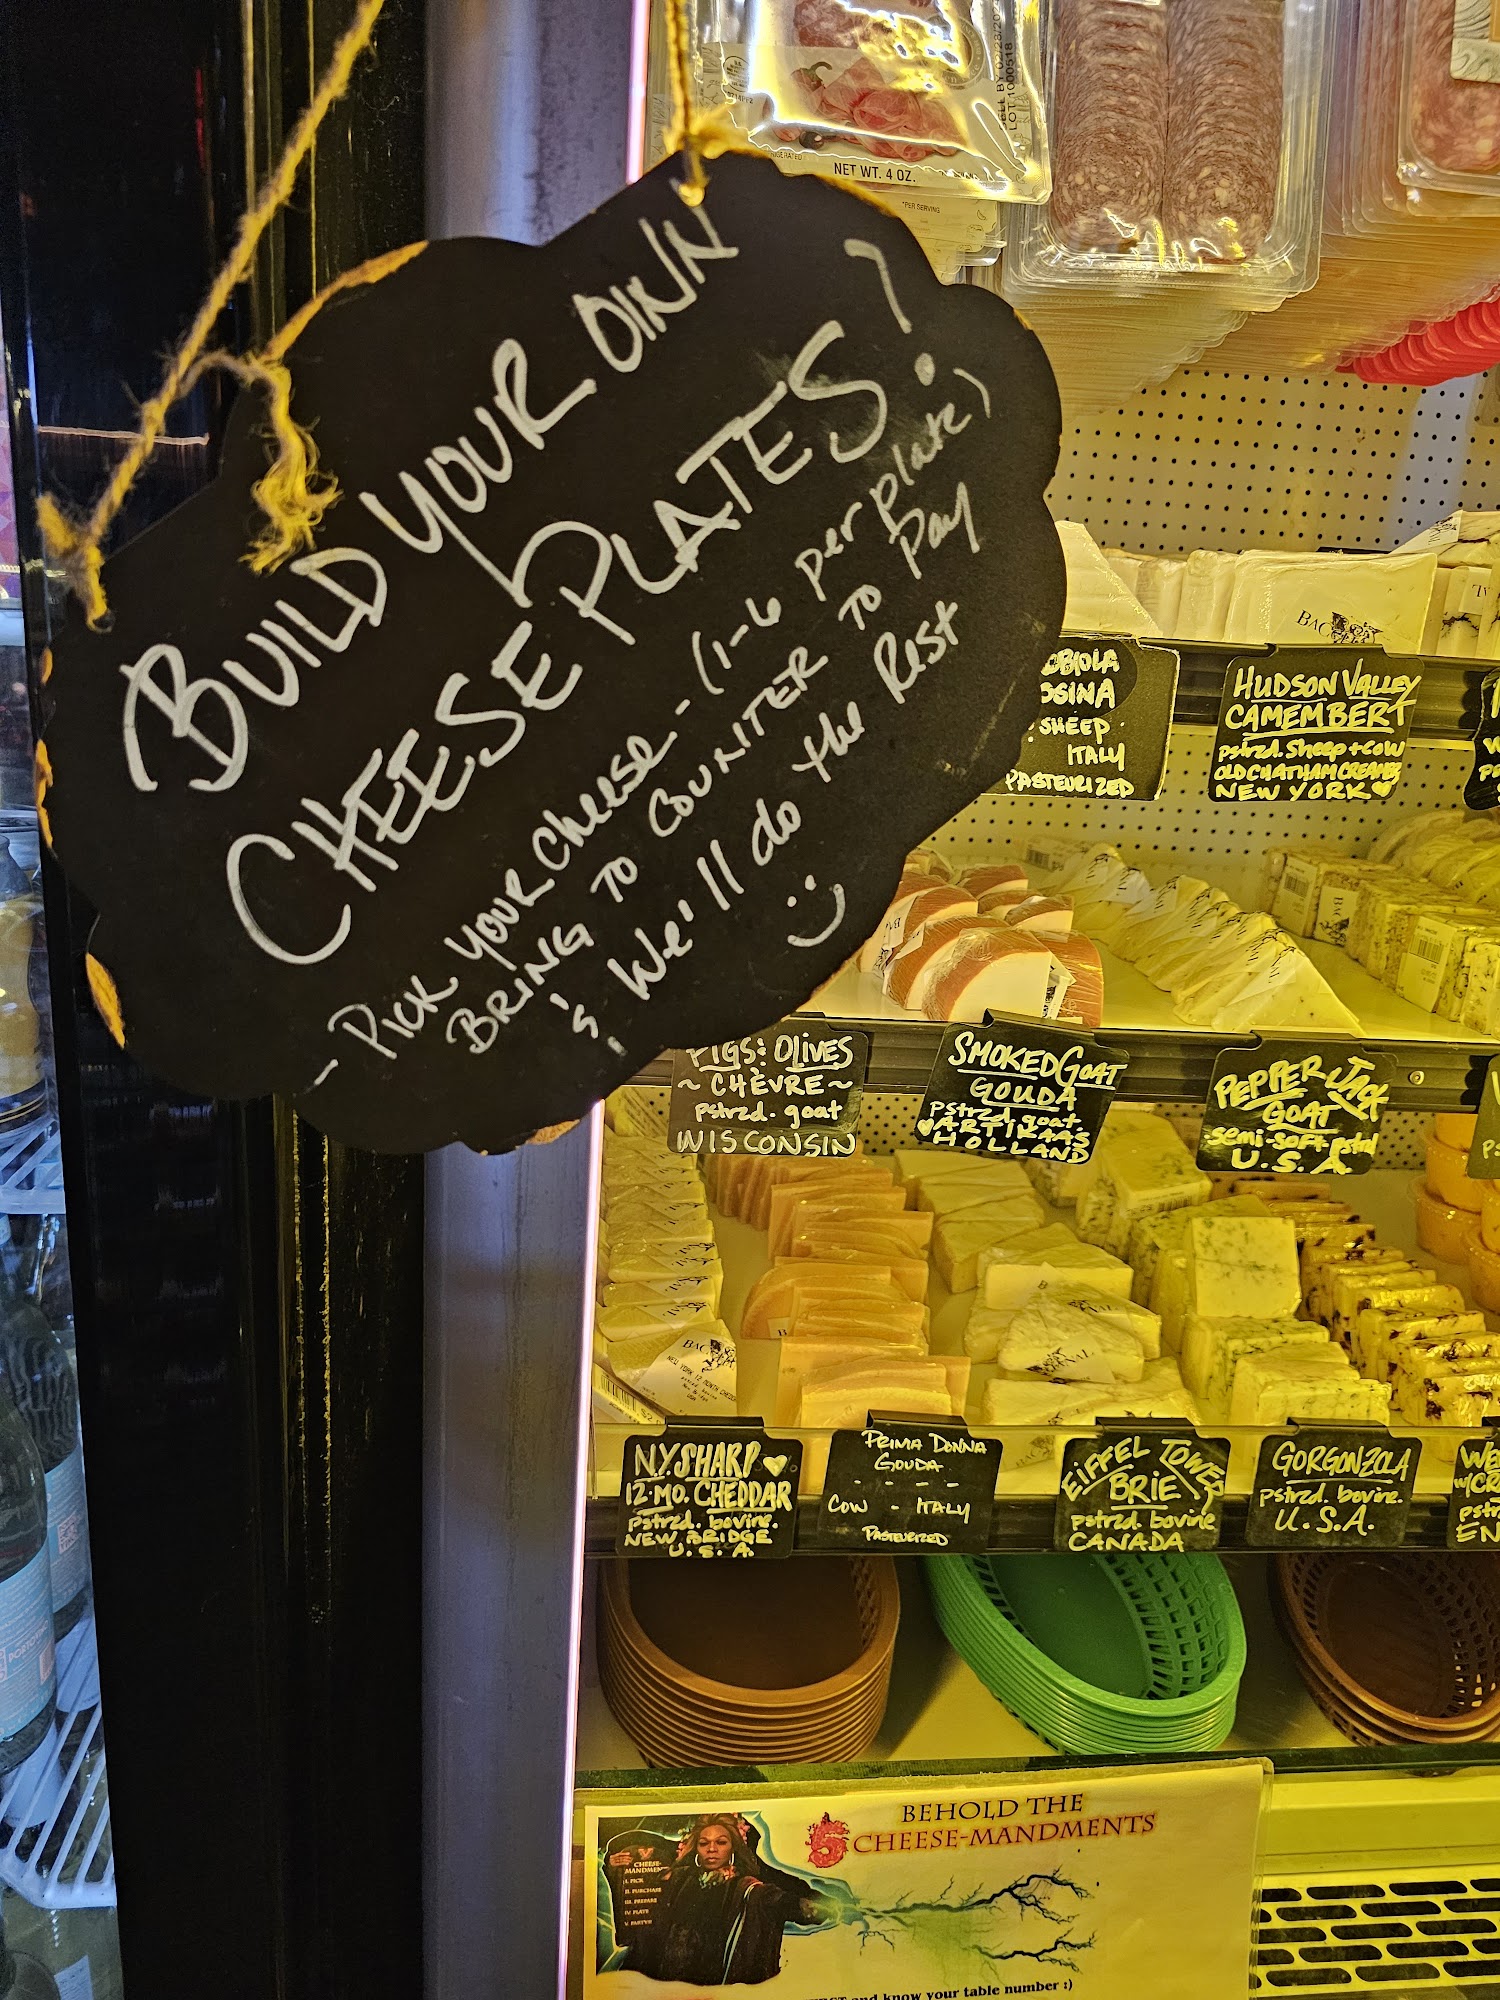 BUILD YOUR OWN
CHEESE PLATES!
- PICK YOUR Cheese - (1-6 per plate)
BRING TO COUNTER TO Pay
& We'll do the Rest
NET WT. 4 OZ.
*PER SERVING
SELL BY 02/28/20
LOT 1000518
OSINA
SHEEP
ITALY
PASTEURIZED
HUDSON VALLEY
CAMEMBERT
pstrzd. Sheep + cow
OLD CHATHAM CREAMERY
NEW YORK
FIGS & OLIVES
~ CHÈVRE ~
pstrzd. goat
WISCONSIN
SMOKED GOAT
GOUDA
pstrzd goat.
ARTIKAAS
HOLLAND
PEPPER JACK
GOAT
semi-soft-pstrd
U.S.A.
N.Y. SHARP
12-MO. CHEDDAR
pstrzd. bovine.
NEW BRIDGE
U.S.A.
PRIMA DONNA
GOUDA
COW - ITALY
PASTEURIZED
EIFFEL TOWER
BRIE
pstrzd. bovine
CANADA
GORGONZOLA
pstrzd. bovine.
U.S.A.
BEHOLD THE
5 CHEESE-MANDMENTS
CHEESE-
MANDMENTS
I. PICK
II. PURCHASE
III. PREPARE
IV. PLATE
V. PARTY!!
and know your table number :)